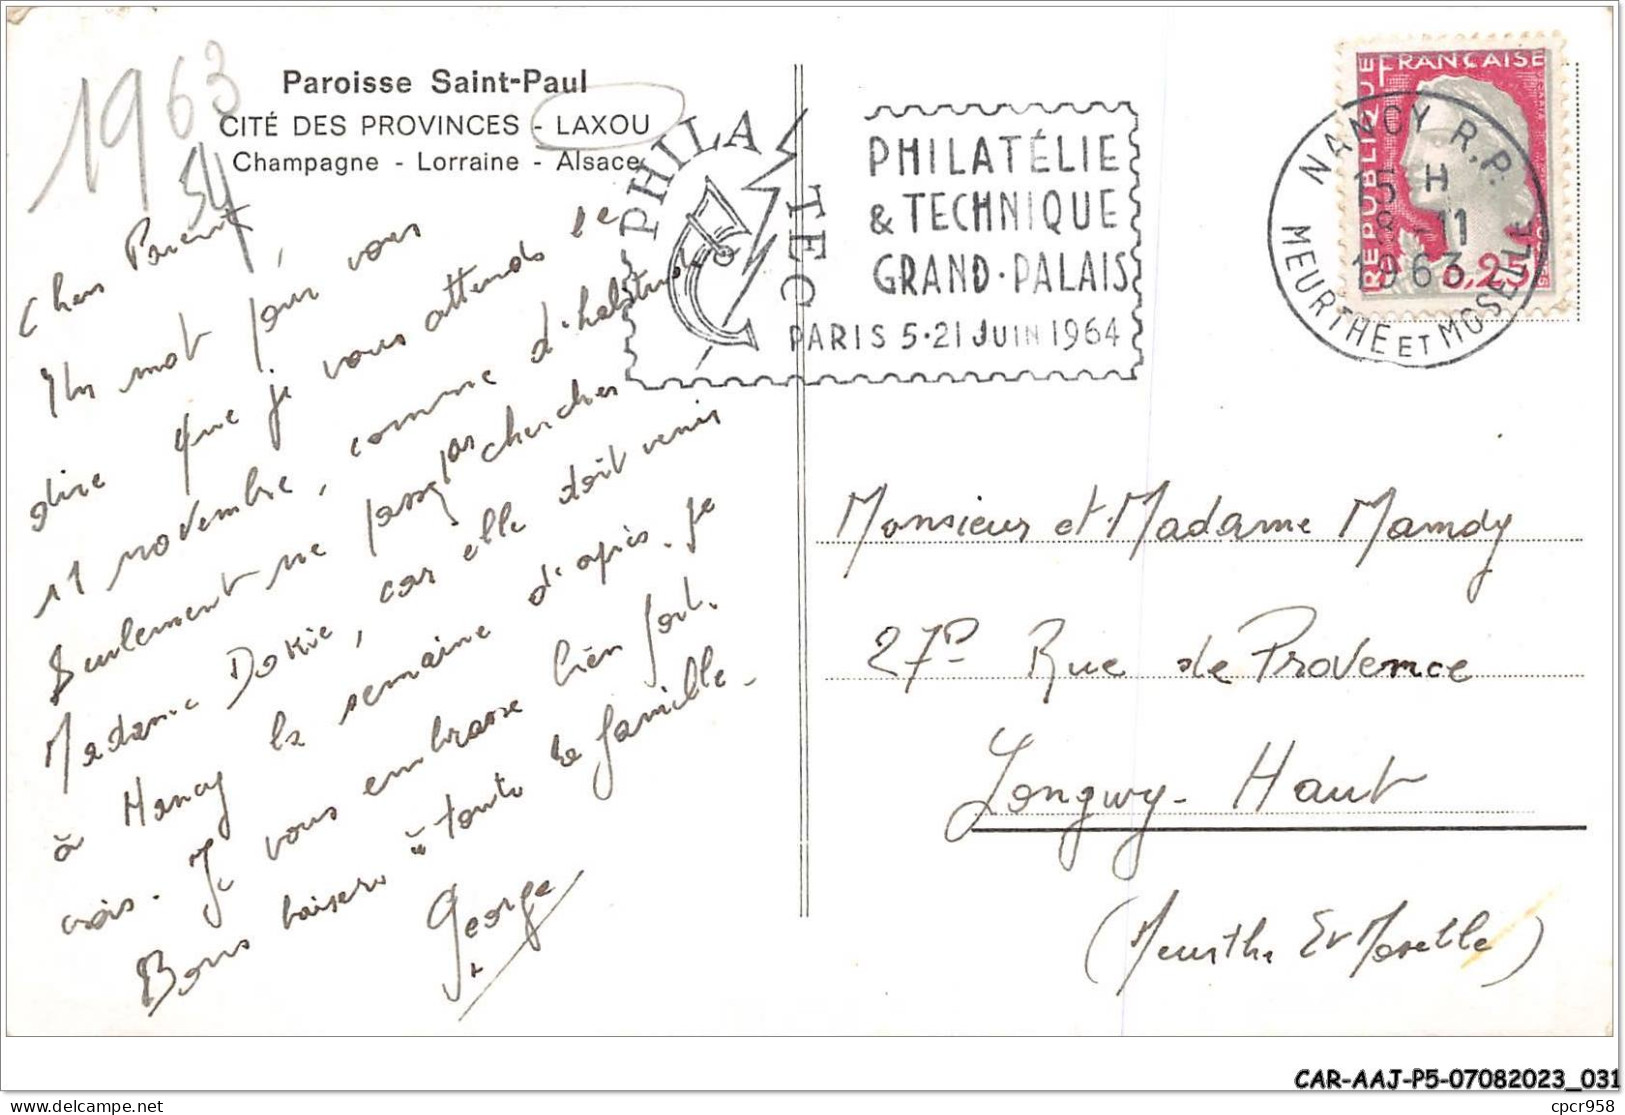 1963
54
Paroisse Saint-Paul
CITÉ DES PROVINCES - LAXOU
Champagne - Lorraine - Alsace
Chers Parents,
Un mot pour vous
dire que je vous attends le
11 novembre, comme d'habitude
Seulement ne passez pas chercher
Madame Dokie, car elle doit venir
à Nancy la semaine d'après. Je
crois. Je vous embrasse bien fort.
Bons baisers à toute la famille.
George
PHILATEC
PHILATÉLIE
& TECHNIQUE
GRAND-PALAIS
PARIS 5·21 JUIN 1964
RÉPUBLIQUE FRANÇAISE
0,25
NANCY R.P.
15 H
8-11
1963
MEURTHE ET MOSELLE
Monsieur et Madame Mamdy
27P Rue de Provence
Longwy-Haut
(Meurthe Et Moselle)
CAR-AAJ-P5-07082023_031
delcampe.net
cpcr958